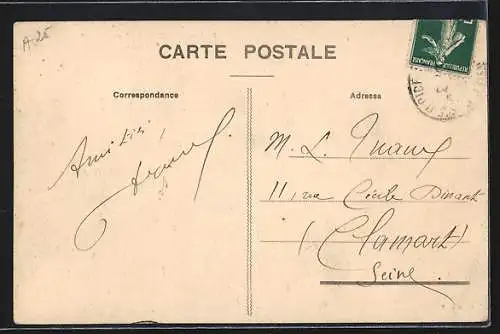 A-25
CARTE POSTALE
REPUBLIQUE FRANÇAISE
Correspondance
Adresse
Amitiés
M. L.
11, rue Cécile Dinant
(Clamart)
Seine.